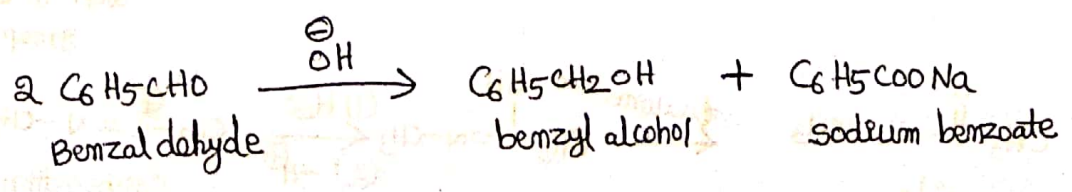 ⊖
OH
2 C6H5CHO ⟶ C6H5CH2OH + C6H5COONa
Benzaldehyde benzyl alcohol sodium benzoate